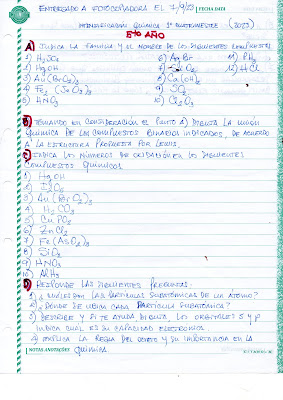 ENTREGADO A FOTOCOPIADORA EL 1/9/23
FECHA DATE
INTENSIFICACIÓN QUÍMICA 1º CUATRIMESTRE (2023)
5to AÑO
A) INDICA LA FAMILIA Y EL NOMBRE DE LOS SIGUIENTES COMPUESTOS
1) H2SO4
2) HgOH
3) Au(BrO3)3
5) HNO3
6) AgBr
9) SO2
10) Cl2O3
11) PH3
12) HCl
B) TENIENDO EN CONSIDERACIÓN EL PUNTO A) DIBUJA LA UNIÓN
QUÍMICA DE LOS COMPUESTOS BINARIOS INDICADOS, DE ACUERDO
A LA ESTRUCTURA PROPUESTA POR LEWIS.
C) INDICA LOS NÚMEROS DE OXIDACIÓN EN LOS SIGUIENTES
COMPUESTOS QUÍMICOS
1) HgOH
2) I2O5
3) Au(BrO3)3
4) H2CO3
5) CuPO4
6) ZnCl2
8) SiO2
9) HNO3
10) AlH3
D) RESPONDE LAS SIGUIENTES PREGUNTAS:
1) ¿CUÁLES SON LAS PARTÍCULAS SUBATÓMICAS DE UN ÁTOMO?
2) ¿DÓNDE SE UBICA CADA PARTÍCULA SUBATÓMICA?
3) DESCRIBE Y SI TE AYUDA, DIBUJA LOS ORBITALES S Y P
INDICA CUAL ES SU CAPACIDAD ELECTRÓNICA.
4) EXPLICA LA REGLA DEL OCTETO Y SU IMPORTANCIA EN LA
QUÍMICA.
NOTAS ANOTAÇÕES